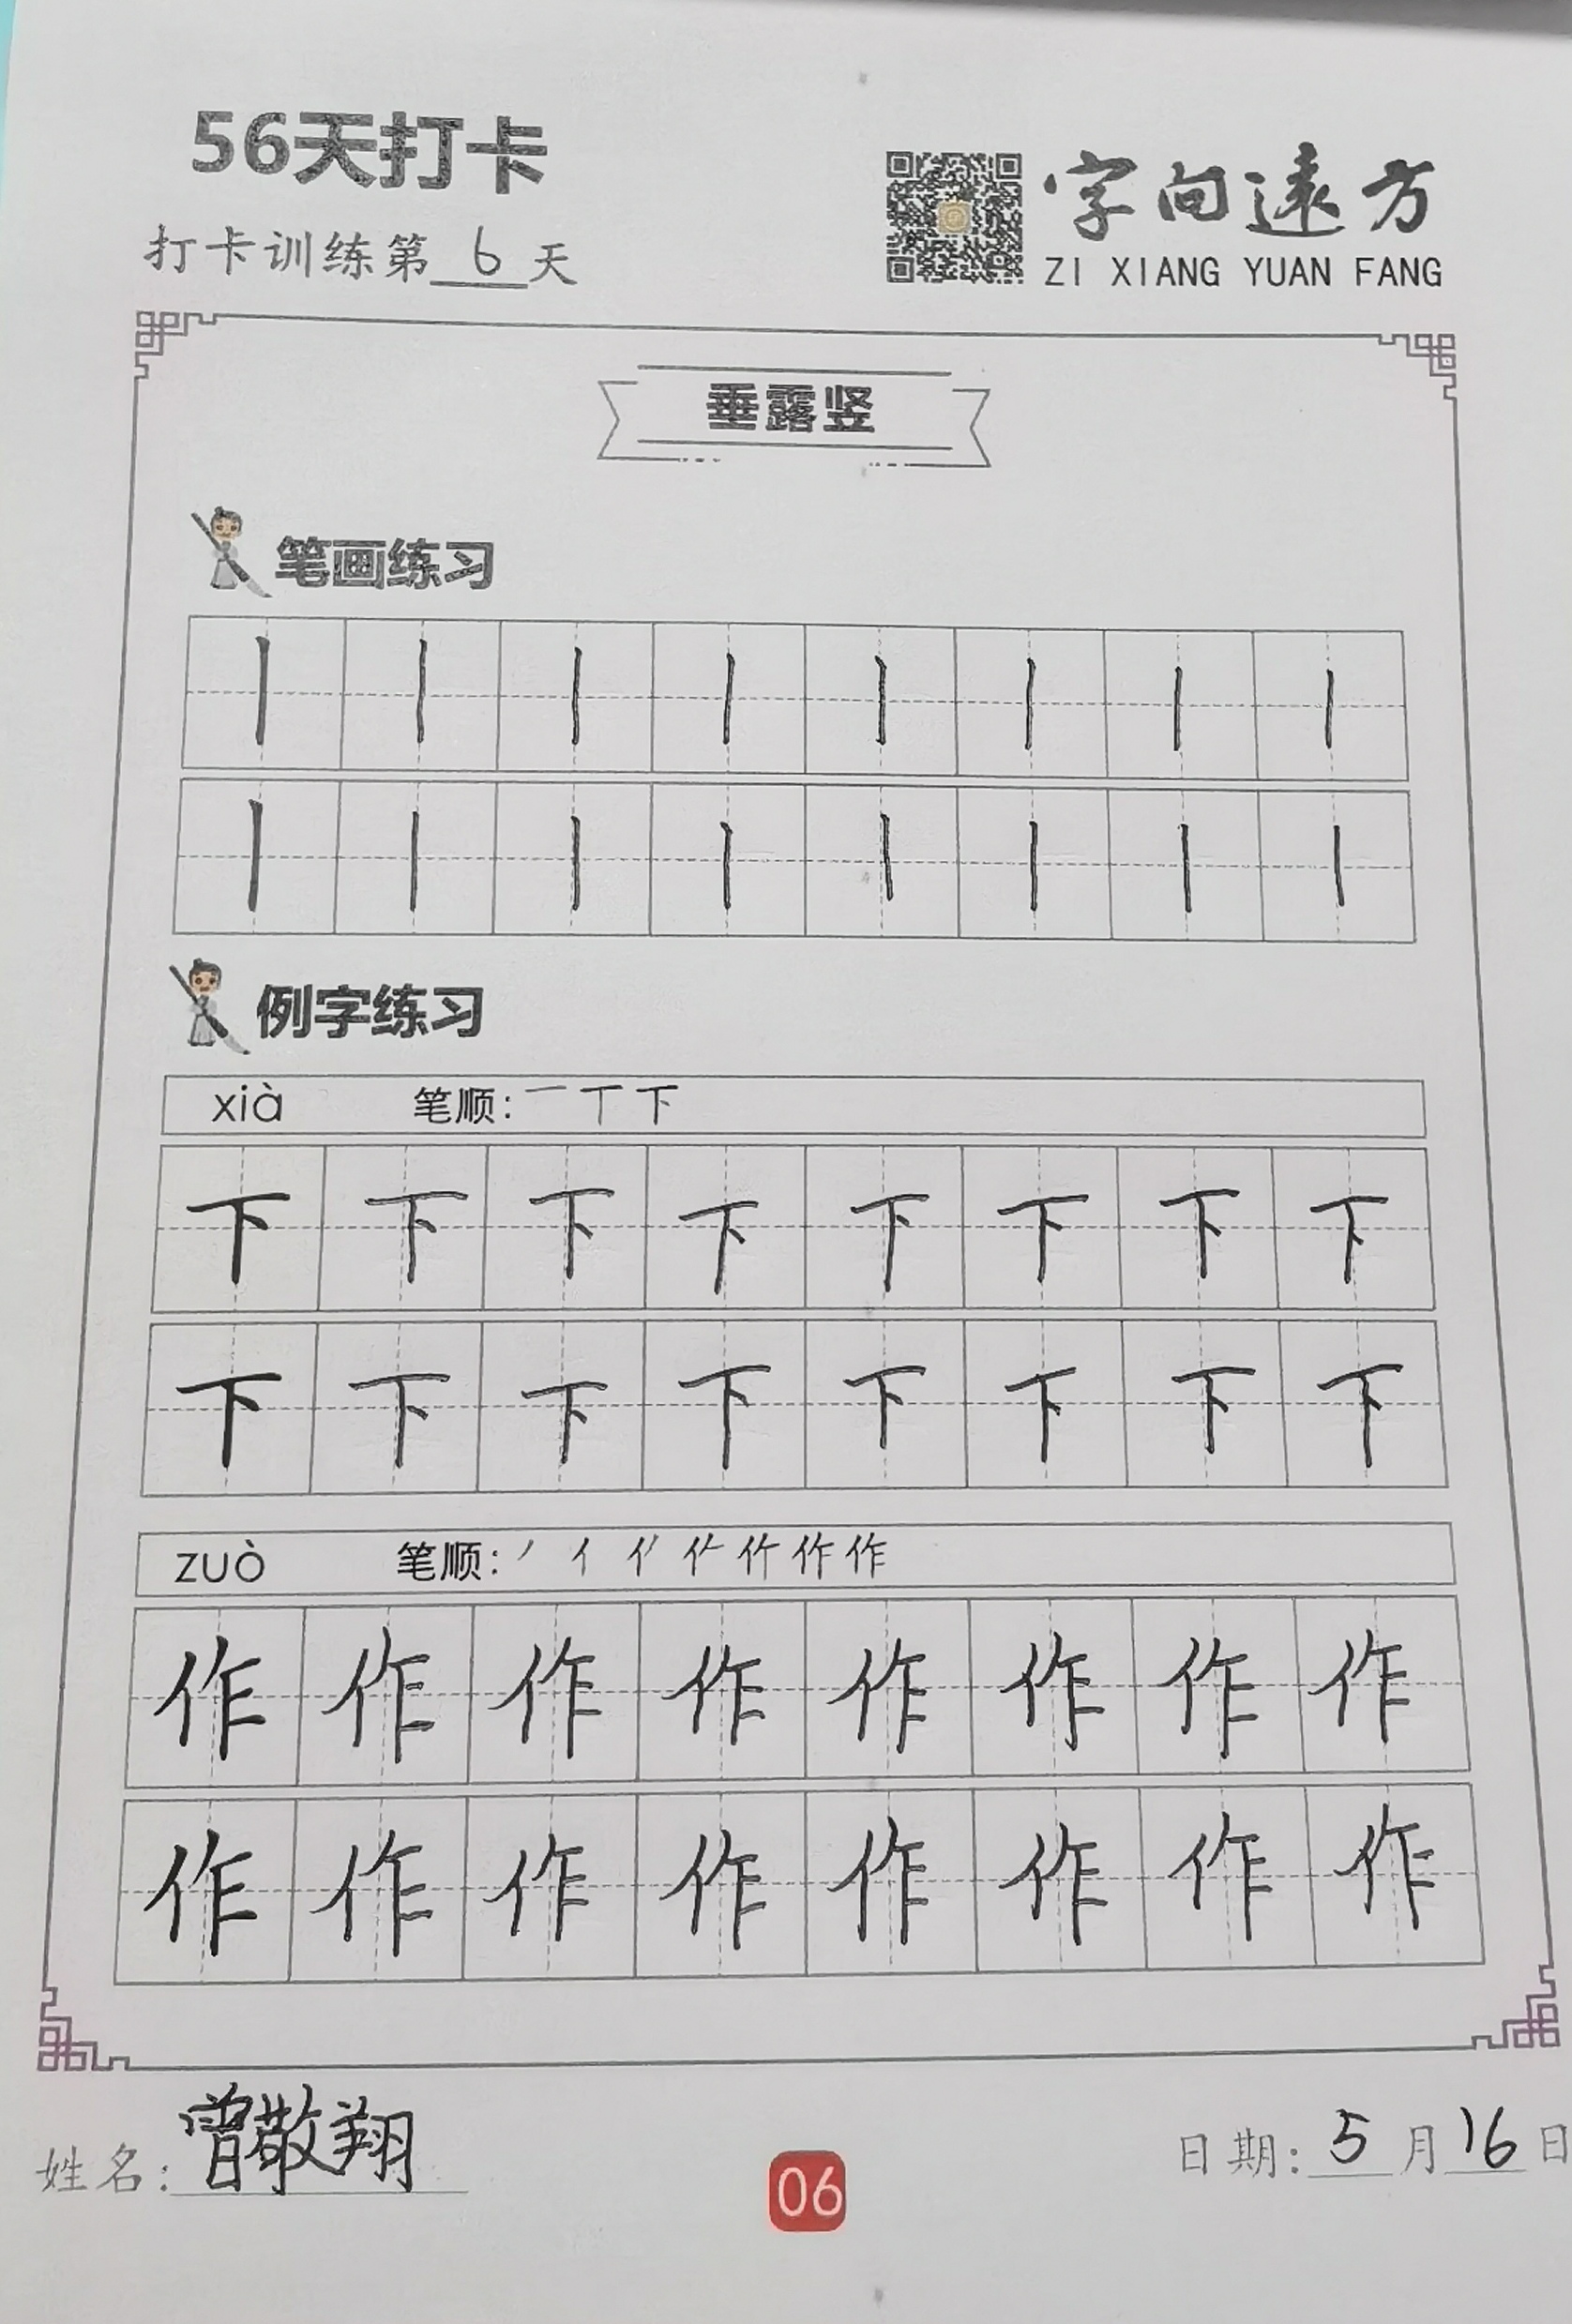 56天打卡
字向遠方
打卡训练第6天
ZI XIANG YUAN FANG
垂露竖
笔画练习
丨丨丨丨丨丨丨丨
丨丨丨丨丨丨丨丨
例字练习
xià 笔顺: 一 丅 下
下下下下下下下下
下下下下下下下下
zuò 笔顺: 丿 亻 亻丿 亻𠂉 作 作 作
作作作作作作作作
作作作作作作作作
姓名: 曾敬翔
日期: 5月16日
06